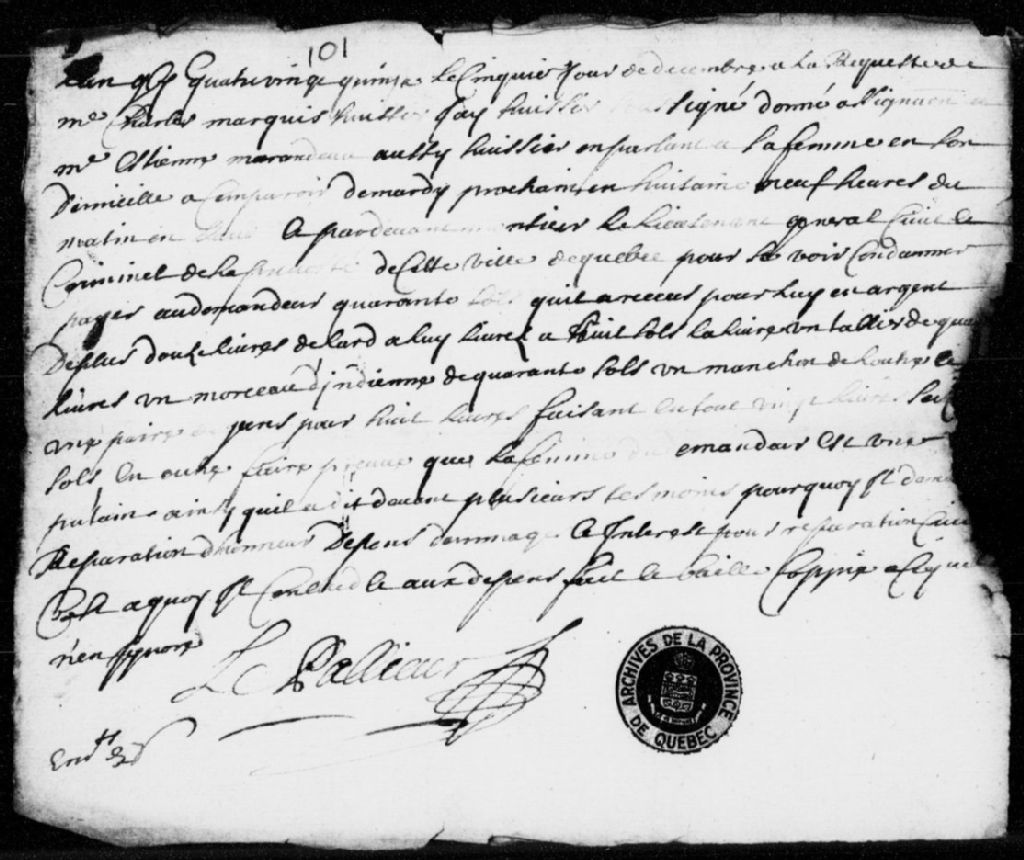 101
Lan Quatrevingt quinze le cinquie Jour de decembre a la Requeste de
me Charles marquis huissier Jay huissier signé donné assignaon a
me Estienne marandeau aussy huissier en parlant a sa femme en son
Domicille a Comparoir de mardy prochain en huitaine neuf heures du
matin en pardevant le lieutenant general Civil Et
Criminel de la prevosté de Cette ville de quebec pour se voir Condamner
payer au demandeur quarante sols quil a receus pour luy en argent
De plus douze livres de lard a luy livré a huit sols la livre un de
livres un morceau d'indienne de quarante sols un manchon de loutre Et
une paire de pour huit livres faisant En tout vingt livres
sols En outre faire preuve que la femme du emandeur Est une
putain ainsy quil a dit devant plusieurs tesmoins pourquoy Il
Reparation dhonneur Depens dommage Et Interest pour reparation
a quoy Il Conclud Et aux depens fait Et baillé Coppie a
n'en Ignore
Le Pallieur
ARCHIVES DE LA PROVINCE DE QUEBEC